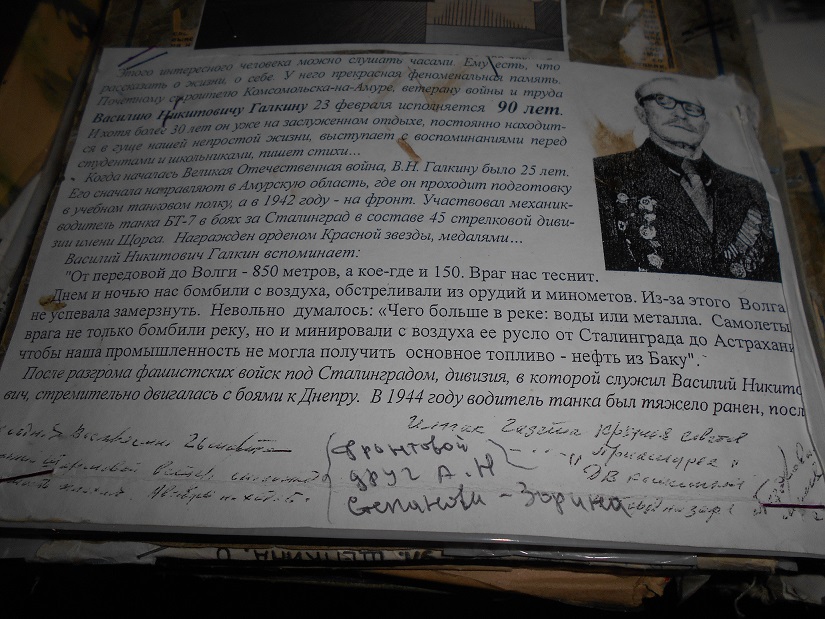 Этого интересного человека можно слушать часами. Ему есть, что
рассказать о жизни, о себе. У него прекрасная феноменальная память.
Почетному строителю Комсомольска-на-Амуре, ветерану войны и труда
Василию Никитовичу Галкину 23 февраля исполняется 90 лет.
И хотя более 30 лет он уже на заслуженном отдыхе, постоянно находит-
ся в гуще нашей непростой жизни, выступает с воспоминаниями перед
студентами и школьниками, пишет стихи...
Когда началась Великая Отечественная война, В.Н. Галкину было 25 лет.
Его сначала направляют в Амурскую область, где он проходит подготовку
в учебном танковом полку, а в 1942 году - на фронт. Участвовал механик-
водитель танка БТ-7 в боях за Сталинград в составе 45 стрелковой диви-
зии имени Щорса. Награжден орденом Красной звезды, медалями...
Василий Никитович Галкин вспоминает:
"От передовой до Волги - 850 метров, а кое-где и 150. Враг нас теснит.
Днем и ночью нас бомбили с воздуха, обстреливали из орудий и минометов. Из-за этого Волга
не успевала замерзнуть. Невольно думалось: «Чего больше в реке: воды или металла. Самолеты
врага не только бомбили реку, но и минировали с воздуха ее русло от Сталинграда до Астрахани
чтобы наша промышленность не могла получить основное топливо - нефть из Баку".
После разгрома фашистских войск под Сталинградом, дивизия, в которой служил Василий Никито
вич, стремительно двигалась с боями к Днепру. В 1944 году водитель танка был тяжело ранен, посл
фронтовой
друг А.Н
Степанови - Зорина